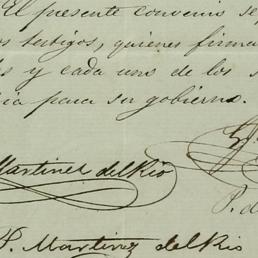 El presente convenio se
os testigos, quienes firma
s y cada uno de los s
ia para su gobierno.
Martinez del Rio
P. d
P. Martinez del Rio